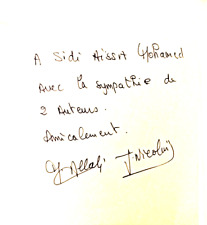 A Sidi Aissa Mohamed
avec la sympathie de
2 Auteurs.
Amicalement.
J Nicolaï